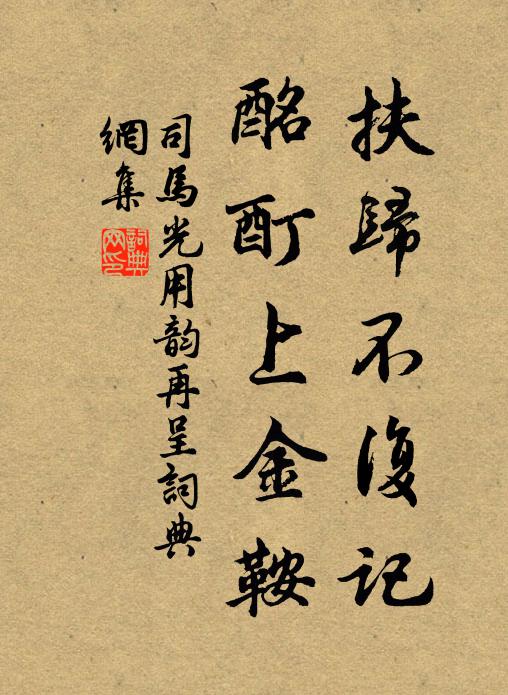 扶歸不復記
酩酊上金鞍
司馬光用韵再呈詞典
網集
詞典
网印